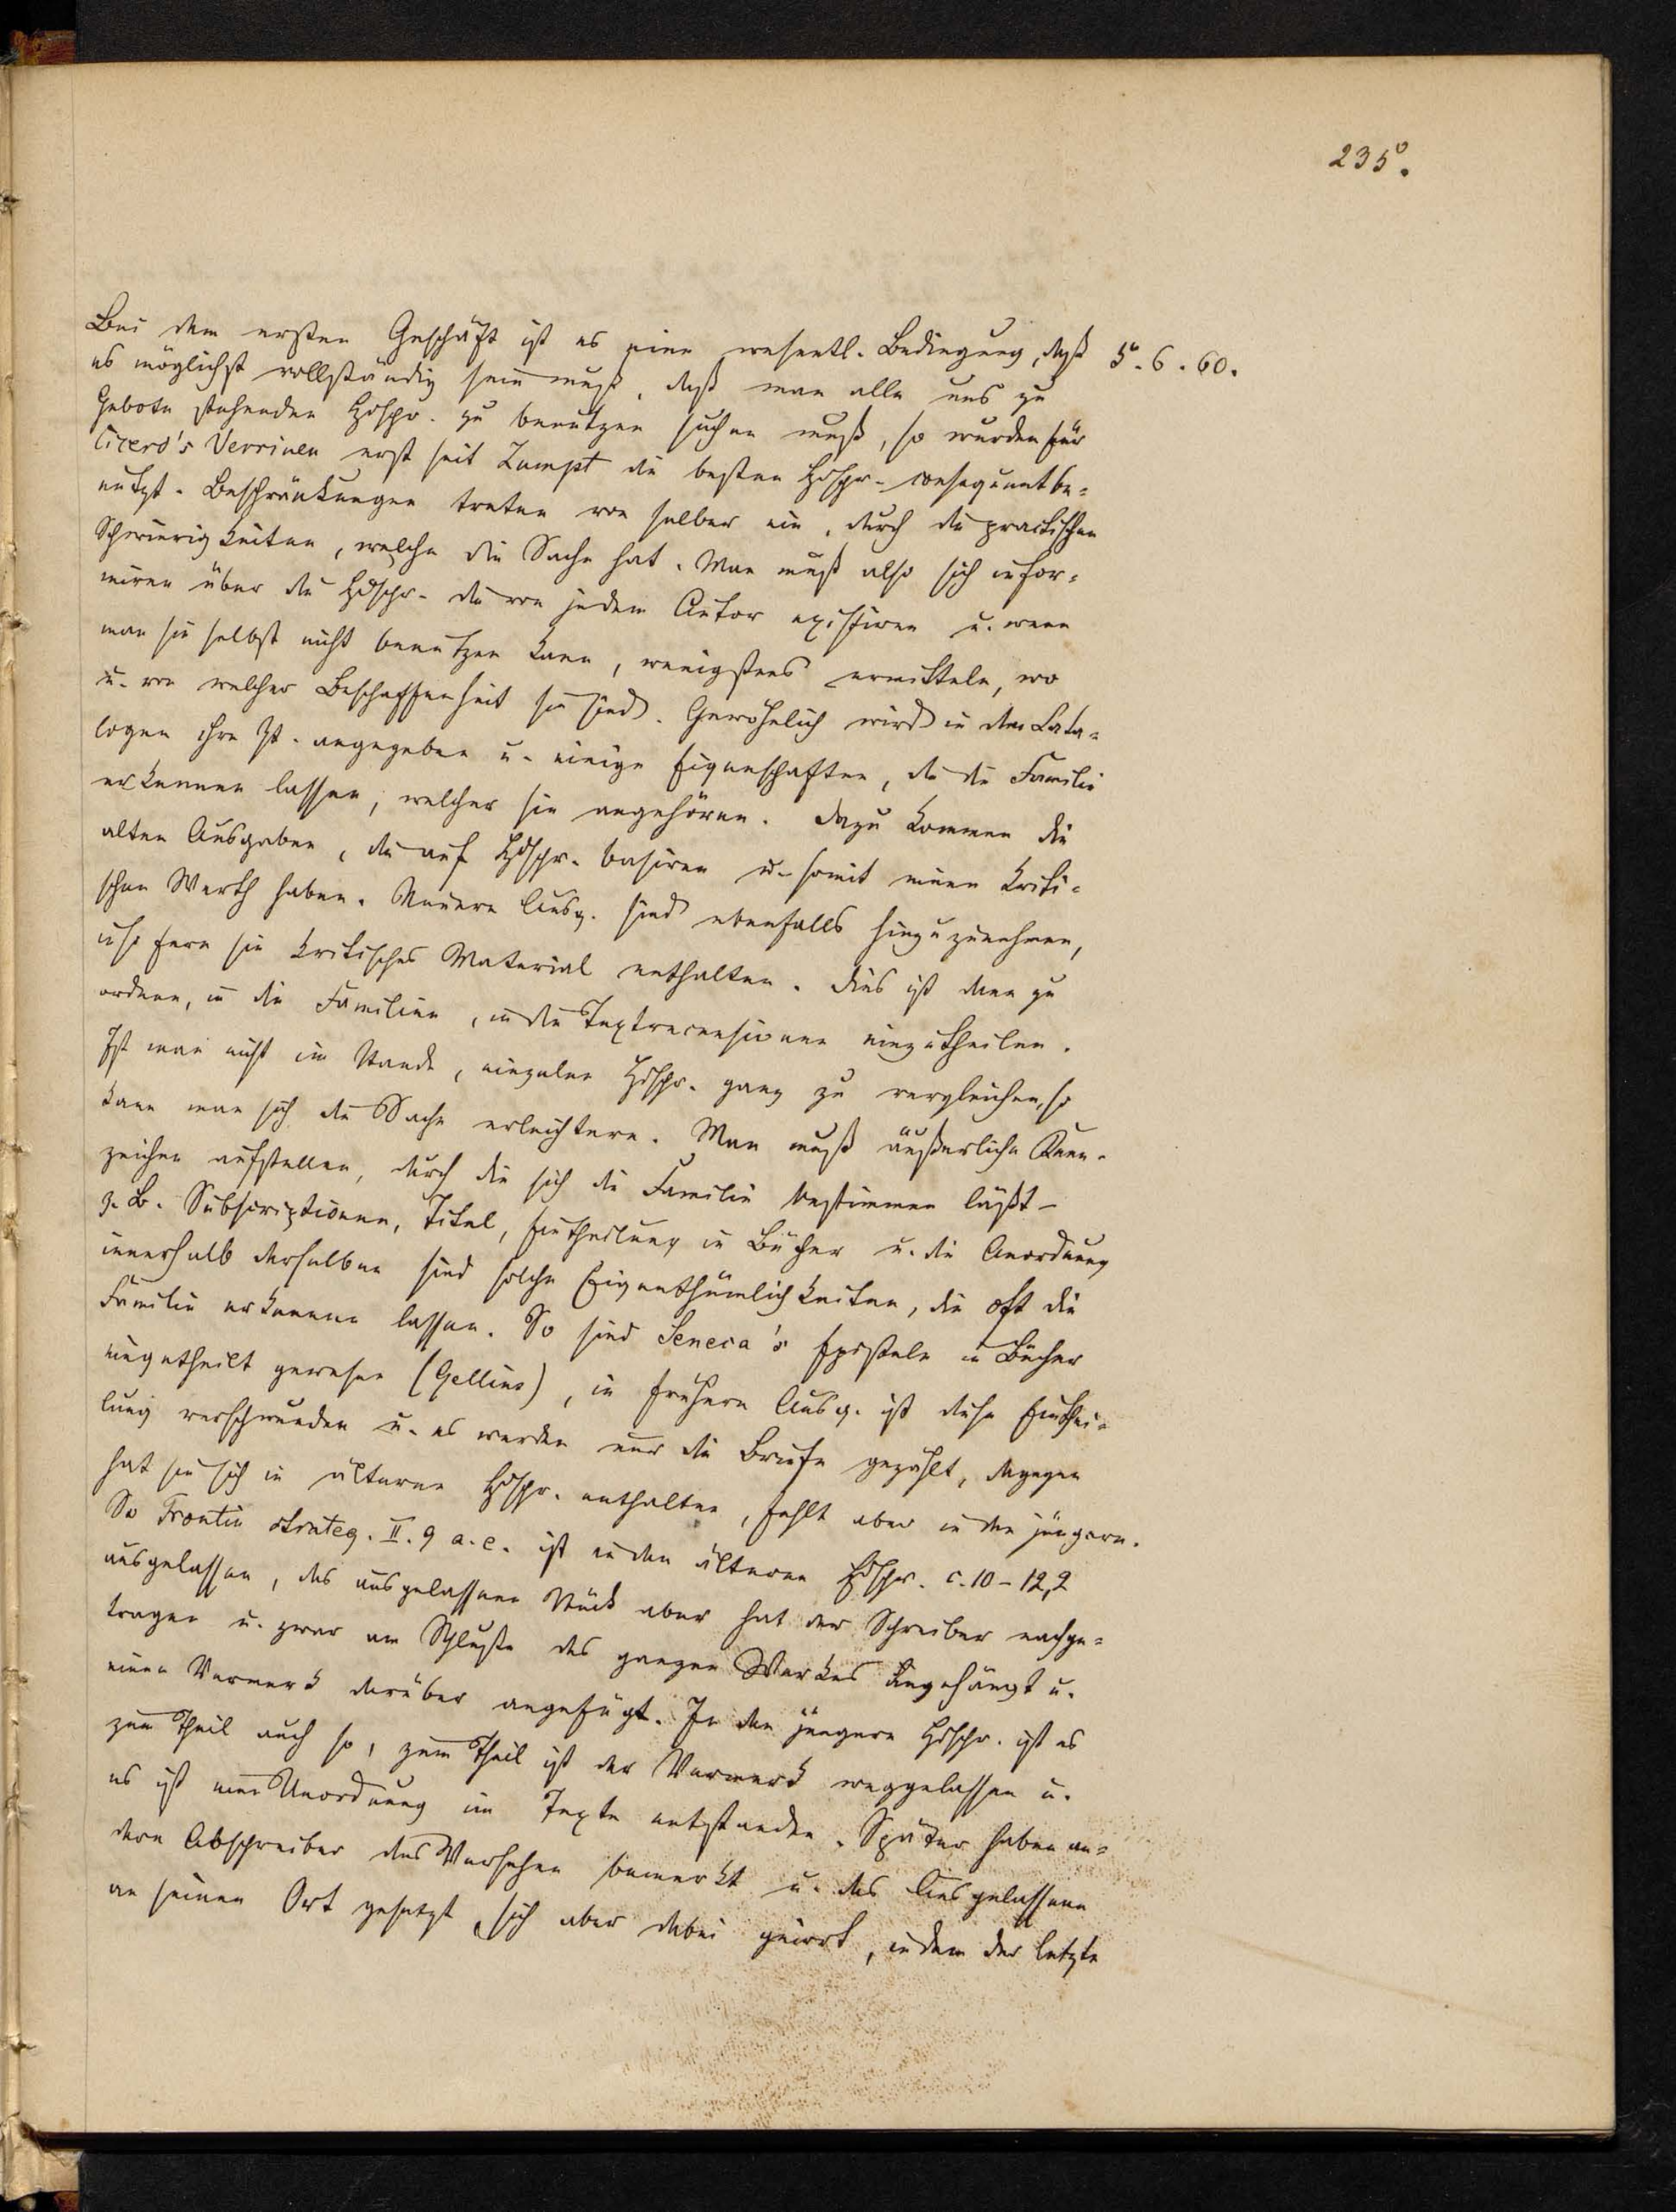 235.
Bei dem ersten Geschäft ist es eine wesentl. Bedingung, daß 5.6.60.
es möglichst vollständig sein muß, daß man alle uns zu
Gebote stehenden Hdschr. zu benutzen suchen muß, so wurden für
Cicero's Verrinen erst seit Zumpt die besten Hdschr. consequent be-
nutzt. Beschränkungen treten von selber ein, durch die practischen
Schwierigkeiten, welche die Sache hat. Man muß also sich infor-
miren über die Hdschr. die von jedem Autor existiren u. wenn
man sie selbst nicht benutzen kann, wenigstens ermitteln, wo
u. von welcher Beschaffenheit sie sind. Gewöhnlich wird in den Cata-
logen ihre Zt. angegeben u. einige Eigenschaften, die die Familie
erkennen lassen, welcher sie angehören. Dazu kommen die
alten Ausgaben, die auf Hdschr. basiren u. somit einen kriti-
schen Werth haben. Neuere Ausg. sind ebenfalls hinzuzunehmen,
insofern sie kritisches Material enthalten. Dies ist dann zu
ordnen, in die Familien, in die Textrecensionen einzutheilen.
Ist man nicht im Stande, einzelne Hdschr. ganz zu vergleichen, so
kann man sich die Sache erleichtern. Man muß äußerliche Kenn-
zeichen aufstellen, durch die sich die Familie bestimmen läßt –
z. B. Subscriptionen, Titel, Eintheilung in Bücher u. die Anordnung
innerhalb derselben sind solche Eigenthümlichkeiten, die oft die
Familie erkennen lassen. So sind Seneca's Episteln in Bücher
eingetheilt gewesen (Gellius), in frühern Ausg. ist diese Einthei-
lung verschwunden u. es werden nur die Briefe gezählt, dagegen
hat sie sich in älteren Hdschr. enthalten, fehlt aber in den jüngern.
So Frontin strateg. II. 9 a. e. ist in den älteren Hdschr. c. 10 – 12,2
ausgelassen, das ausgelassene Stück aber hat der Schreiber nachge-
tragen u. zwar am Schluße des ganzen Werkes angehängt u.
einen Vermerk darüber angefügt. In den jüngern Hdschr. ist es
zum Theil auch so, zum Theil ist der Vermerk weggelassen u.
es ist eine Unordnung im Texte entstanden. Später haben an-
dere Abschreiber das Versehen bemerkt u. das Ausgelassene
an seinen Ort gesetzt, sich aber dabei geirrt, indem der letzte